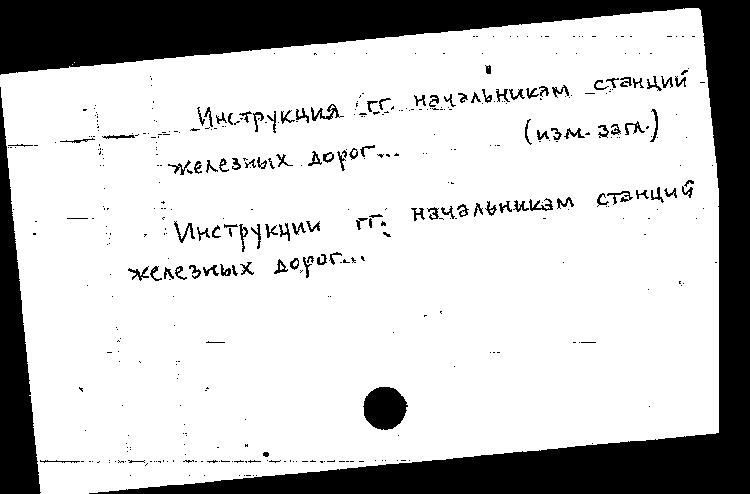 Инструкция гг. начальникам станций
железных дорог... (изм. загл.)
Инструкции гг. начальникам станций
железных дорог...